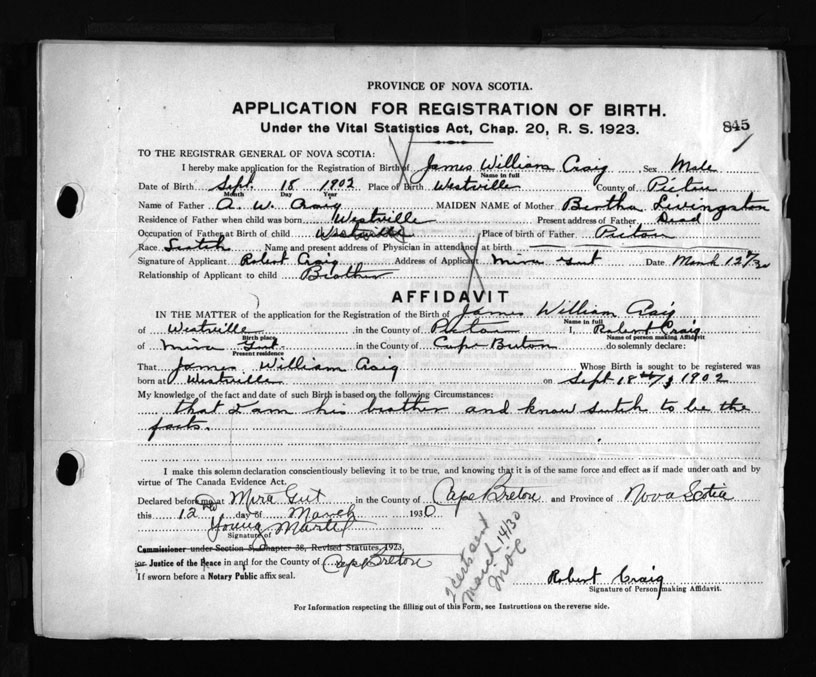 PROVINCE OF NOVA SCOTIA.
APPLICATION FOR REGISTRATION OF BIRTH.
845
Under the Vital Statistics Act, Chap. 20, R. S. 1923.
TO THE REGISTRAR GENERAL OF NOVA SCOTIA:
I hereby make application for the Registration of Birth of James William Craig Sex Male
Name in full
Date of Birth Sept. 18 1902 Place of Birth Westville County of Pictou
Month Day Year
Name of Father A. W. Craig MAIDEN NAME of Mother Bertha Livingston
Residence of Father when child was born Westville Present address of Father Dead
Occupation of Father at Birth of child Westville Place of birth of Father Pictou
Race Scotch Name and present address of Physician in attendance at birth
Signature of Applicant Robert Craig Address of Applicant Mira Gut Date March 12th/30
Relationship of Applicant to child Brother
AFFIDAVIT
IN THE MATTER of the application for the Registration of the Birth of James William Craig
Name in full
of Westville in the County of Pictou I, Robert Craig
Birth place Name of person making Affidavit
of Mira Gut in the County of Cape Breton do solemnly declare:
Present residence
That James William Craig Whose Birth is sought to be registered was
born at Westville on Sept 18th 1902
My knowledge of the fact and date of such Birth is based on the following Circumstances:
that I am his brother and know sutch to be the
facts.
I make this solemn declaration conscientiously believing it to be true, and knowing that it is of the same force and effect as if made under oath and by
virtue of The Canada Evidence Act.
Declared before me at Mira Gut in the County of Cape Breton and Province of Nova Scotia
this 12 day of March 1930
Young Martel
Signature of
Commissioner under Section 5, Chapter 38, Revised Statutes, 1923,
or Justice of the Peace in and for the County of Cape Breton
If sworn before a Notary Public affix seal.
sent
March 14/30
Robert Craig
Signature of Person making Affidavit.
For Information respecting the filling out of this Form, see Instructions on the reverse side.